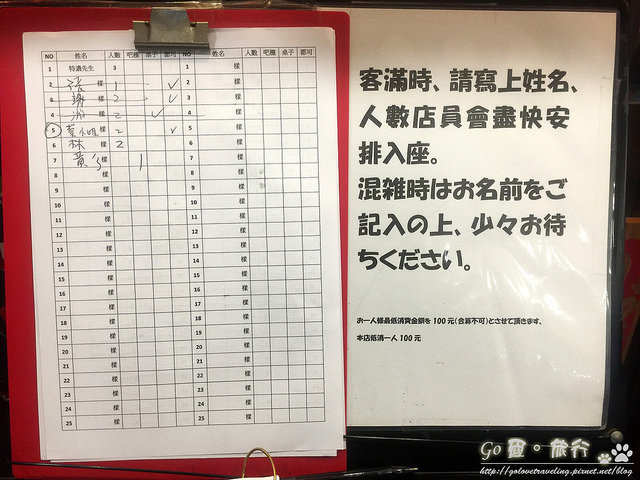 NO 姓名 人數 吧檯 桌子 都可 NO 姓名 人數 吧檯 桌子 都可
1 特濃先生 3 1 樣
2 樣 1 ✓ 2 樣
3 謝 樣 2 ✓ 3 樣
4 游 樣 2 ✓ 4 樣
5 葉小姐 樣 2 ✓ 5 樣
6 林 樣 2 6 樣
7 黃's 樣 1 7 樣
8 樣 8 樣
9 樣 9 樣
10 樣 10 樣
11 樣 11 樣
12 樣 12 樣
13 樣 13 樣
14 樣 14 樣
15 樣 15 樣
16 樣 16 樣
17 樣 17 樣
18 樣 18 樣
19 樣 19 樣
20 樣 20 樣
21 樣 21 樣
22 樣 22 樣
23 樣 23 樣
24 樣 24 樣
25 樣 25 樣
客滿時、請寫上姓名、
人數店員會盡快安
排入座。
混雑時はお名前をご
記入の上、少々お待
ちください。
お一人様最低消費金額を 100 元(合算不可)とさせて頂きます。
本店低消一人 100 元
Go 愛。旅行
http://golovetraveling.pixnet.net/blog